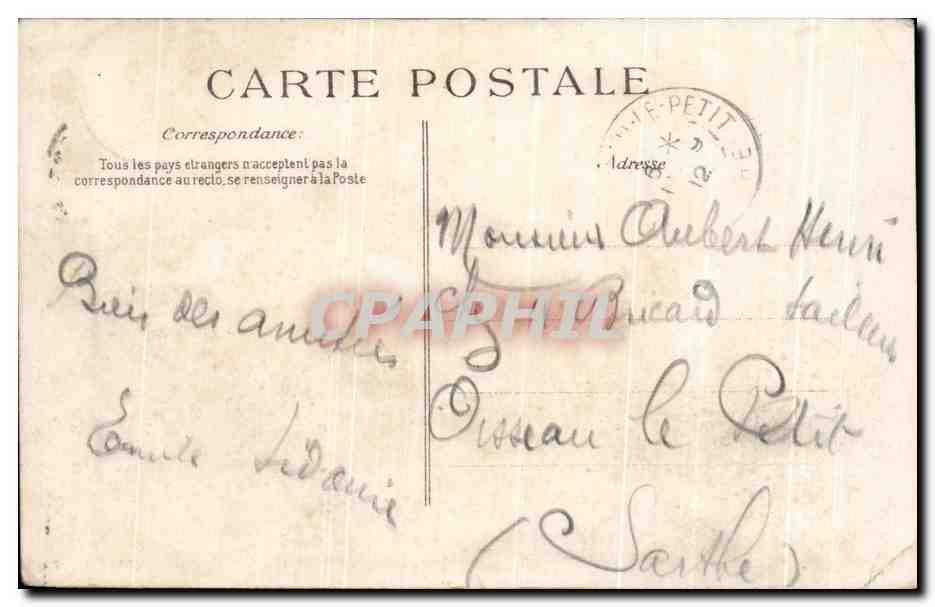 CARTE POSTALE
Correspondance:
Tous les pays etrangers n'acceptent pas la
correspondance au recto, se renseigner à la Poste
Bien des amitiés
Emile
LE-PETIT
12
Adresse
Monsieur Aubert Henri
chez Bucard tailleur
Oisseau le Petit
(Sarthe)
CPAPHIL